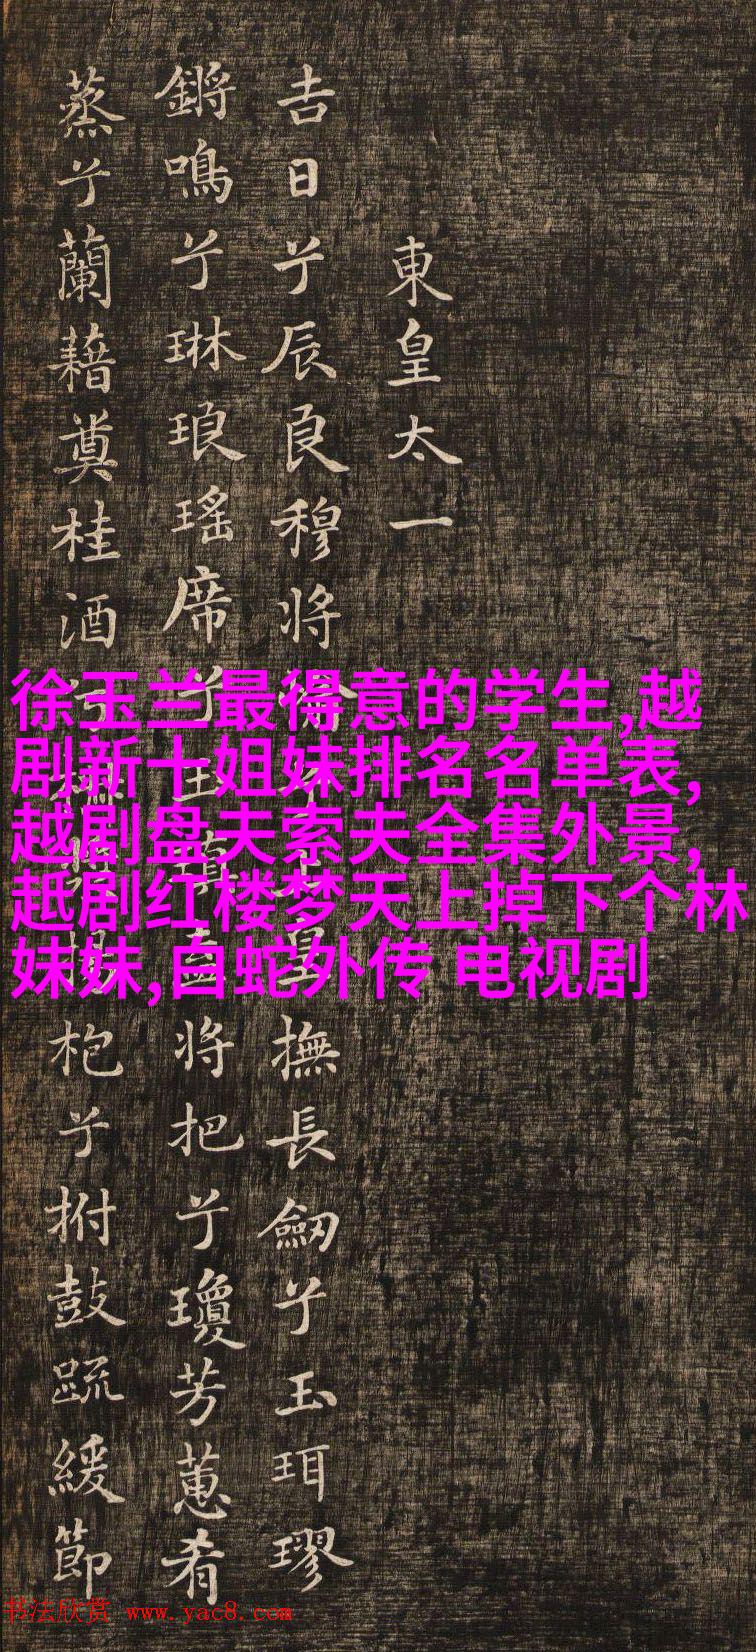 東皇太一
吉日兮辰良穆將兮皇撫長劔兮玉珥璆
鏘鳴兮琳琅瑤席兮玉瑱盍將把兮瓊芳蕙肴
蒸兮蘭藉奠桂酒兮枹兮拊鼓䟽緩節
徐玉兰最得意的学生,越
剧新十姐妹排名名单表,
越剧盘夫索夫全集外景,
赿剧红楼梦天上掉下个林
妹妹,白蛇外传 电视剧
书法欣赏 www.yac8.com